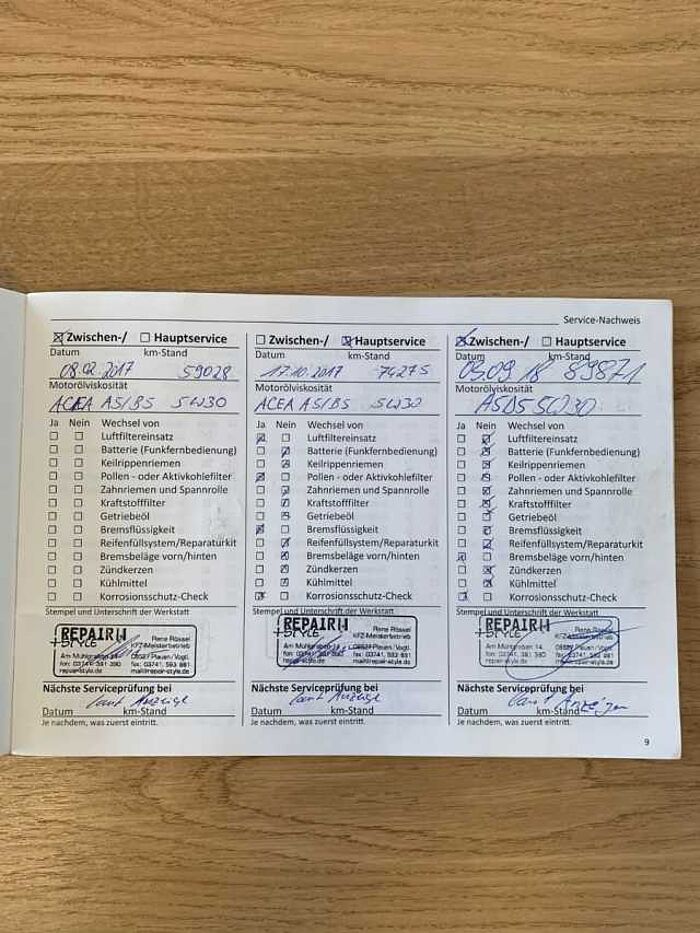 Service-Nachweis
Zwischen-/ Hauptservice
Datum km-Stand
08.02.2017 59028
Motorölviskosität
ACEA A5/B5 5W30
Ja Nein Wechsel von
Luftfiltereinsatz
Batterie (Funkfernbedienung)
Keilrippenriemen
Pollen - oder Aktivkohlefilter
Zahnriemen und Spannrolle
Kraftstofffilter
Getriebeöl
Bremsflüssigkeit
Reifenfüllsystem/Reparaturkit
Bremsbeläge vorn/hinten
Zündkerzen
Kühlmittel
Korrosionsschutz-Check
Stempel und Unterschrift der Werkstatt
REPAIR
+STYLE
Rene Rössel
KFZ-Meisterbetrieb
Am Mühlgraben 14, 08527 Plauen/Vogtl.
fon: 03741. 591 380 fax: 03741. 593 881
repair-style.de mail@repair-style.de
Nächste Serviceprüfung bei
laut Anzeige
Datum km-Stand
Je nachdem, was zuerst eintritt.
Zwischen-/ Hauptservice
Datum km-Stand
17.10.2017 74275
Motorölviskosität
ACEA A5/B5 5W30
Ja Nein Wechsel von
Luftfiltereinsatz
Batterie (Funkfernbedienung)
Keilrippenriemen
Pollen - oder Aktivkohlefilter
Zahnriemen und Spannrolle
Kraftstofffilter
Getriebeöl
Bremsflüssigkeit
Reifenfüllsystem/Reparaturkit
Bremsbeläge vorn/hinten
Zündkerzen
Kühlmittel
Korrosionsschutz-Check
Stempel und Unterschrift der Werkstatt
REPAIR
+STYLE
Rene Rössel
KFZ-Meisterbetrieb
Am Mühlgraben 14, 08527 Plauen/Vogtl.
fon: 03741. 591 380 fax: 03741. 593 881
repair-style.de mail@repair-style.de
Nächste Serviceprüfung bei
laut Anzeige
Datum km-Stand
Je nachdem, was zuerst eintritt.
Zwischen-/ Hauptservice
Datum km-Stand
05.09.18 89871
Motorölviskosität
A5B5 5W30
Ja Nein Wechsel von
Luftfiltereinsatz
Batterie (Funkfernbedienung)
Keilrippenriemen
Pollen - oder Aktivkohlefilter
Zahnriemen und Spannrolle
Kraftstofffilter
Getriebeöl
Bremsflüssigkeit
Reifenfüllsystem/Reparaturkit
Bremsbeläge vorn/hinten
Zündkerzen
Kühlmittel
Korrosionsschutz-Check
Stempel und Unterschrift der Werkstatt
REPAIR
+STYLE
Rene Rössel
KFZ-Meisterbetrieb
Am Mühlgraben 14, 08527 Plauen/Vogtl.
fon: 03741. 591 380 fax: 03741. 593 881
repair-style.de mail@repair-style.de
Nächste Serviceprüfung bei
laut Anzeige
Datum km-Stand
Je nachdem, was zuerst eintritt.
9